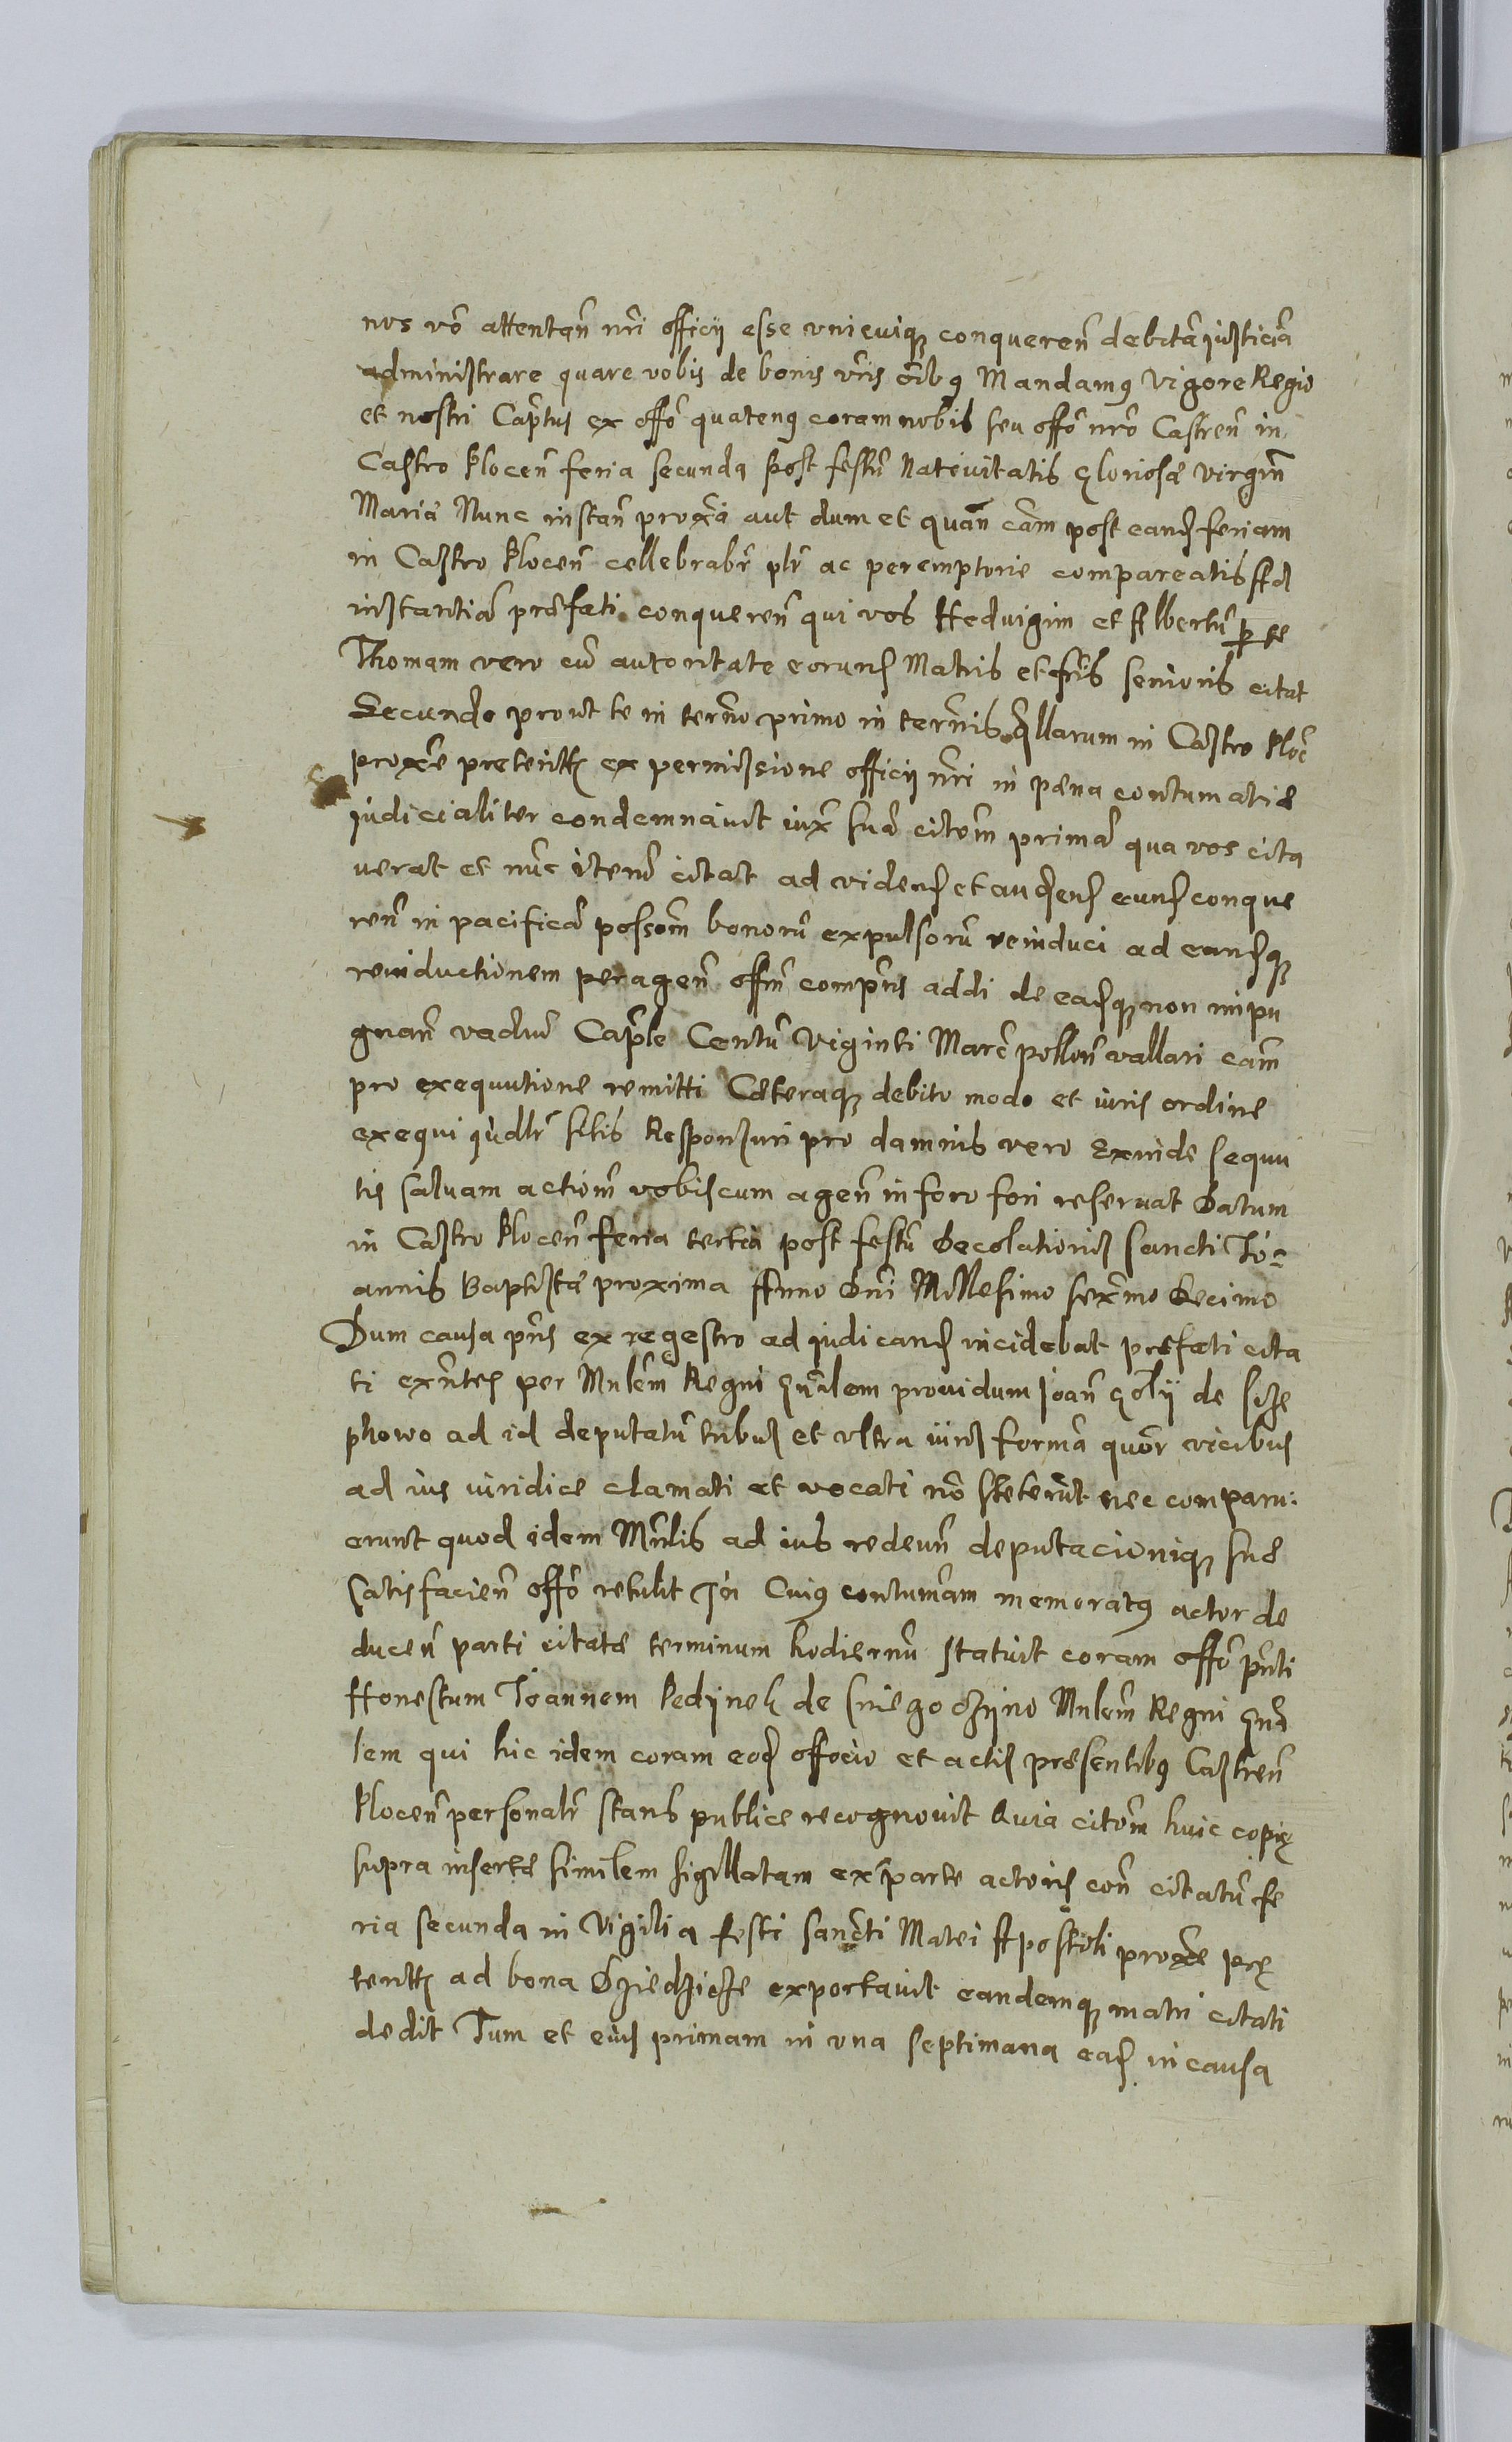 nos vō attentan̄ nr̄i officij esse vnicuiq3 conqueren̄ debitā iusticiā
administrare quare vobis de bonis vr̄is ōibus Mandamus Vigore Regio
et nostri Cap̄tus ex off̄o quatenus coram nobis seu off̄o nr̄o Castren̄ in
Castro Plocen̄ feria secunda post festū Natiuitatis gloriosæ virgīn
Mariæ Nunc instan̄ prox̄a aut dum et quān cām post eand feriam
in Castro Plocen̄ cellebrabr̄ plr̄ ac peremptorie compareatis Ad
instantiā præfati conqueren̄ qui vos Hedvigim et Albertū per te
Thomam vero cū autoritate eorund Matris et fr̄is senioris citat
Secundo prout te in termo primo in termis q̄llarum in Castro Ploc̄
prox̄e preteritis ex permissione officij nr̄i in pæna contumatiæ
judicialiter condemnauit iux̄ suā citōm primā qua vos cita
uerat et nūc iterū citat ad videnḋ et audienḋ eund conque
ren̄ in pacificā possōm bonorū expulsorū reinduci ad eandq3
reinductionem peragen̄ off̄m comp̄ns addi de eadq3 non impu
gnan̄ vadiū Cap̄le Centū Viginti Marc̄ pollon̄ vallari cām
pro exequutione remitti Cæteraq3 debito modo et iuris ordine
exequi iudlr̄ sitis Responsuri pro damnis vero Exinde sequu
tis saluam actiōm vobiscum agen̄ in foro fori reseruat Datum
in Castro Plocen̄ feria tertia post festū Decolationis sancti Jo=
annis Baptistæ proxima Anno Dn̄i Millesimo sex̄mo Decimo
Dum causa pn̄s ex regestro ad iudicand incidebat præfati cita
ti exn̄tes per Mnlēm Regni gn̄alem prouidum Joan̄ de
ad id deputatū tribus et vltra iuris formā quōr vicibus
ad ius iuridice clamati et vocati nō steterūt nec comparu:
erunt quod idem Mn̄lis ad ius redeun̄ deputacioniq3 suæ
satisfacien̄ off̄o retulit In Cuius contumām memoratus actor de
ducen̄ parti citatæ terminum hodiernū statuit coram off̄o pn̄ti
Honestum Joannem de Mnlēm Regni gn̄a
lem qui hic idem coram eod officio et actis præsentibus Castren̄
Plocen̄ personalr̄ stans publice recognouit Quia citōm huic copiæ
supra insertæ similem sigillatam ex parte actoris con̄ citatū fe
ria secunda in Vigilia festi sancti Matei Apostoli prox̄e præ
teritis ad bona Dziedzicze exportauit eandemq3 matri citati
dedit Tum et eius primam in vna septimana ead in causa